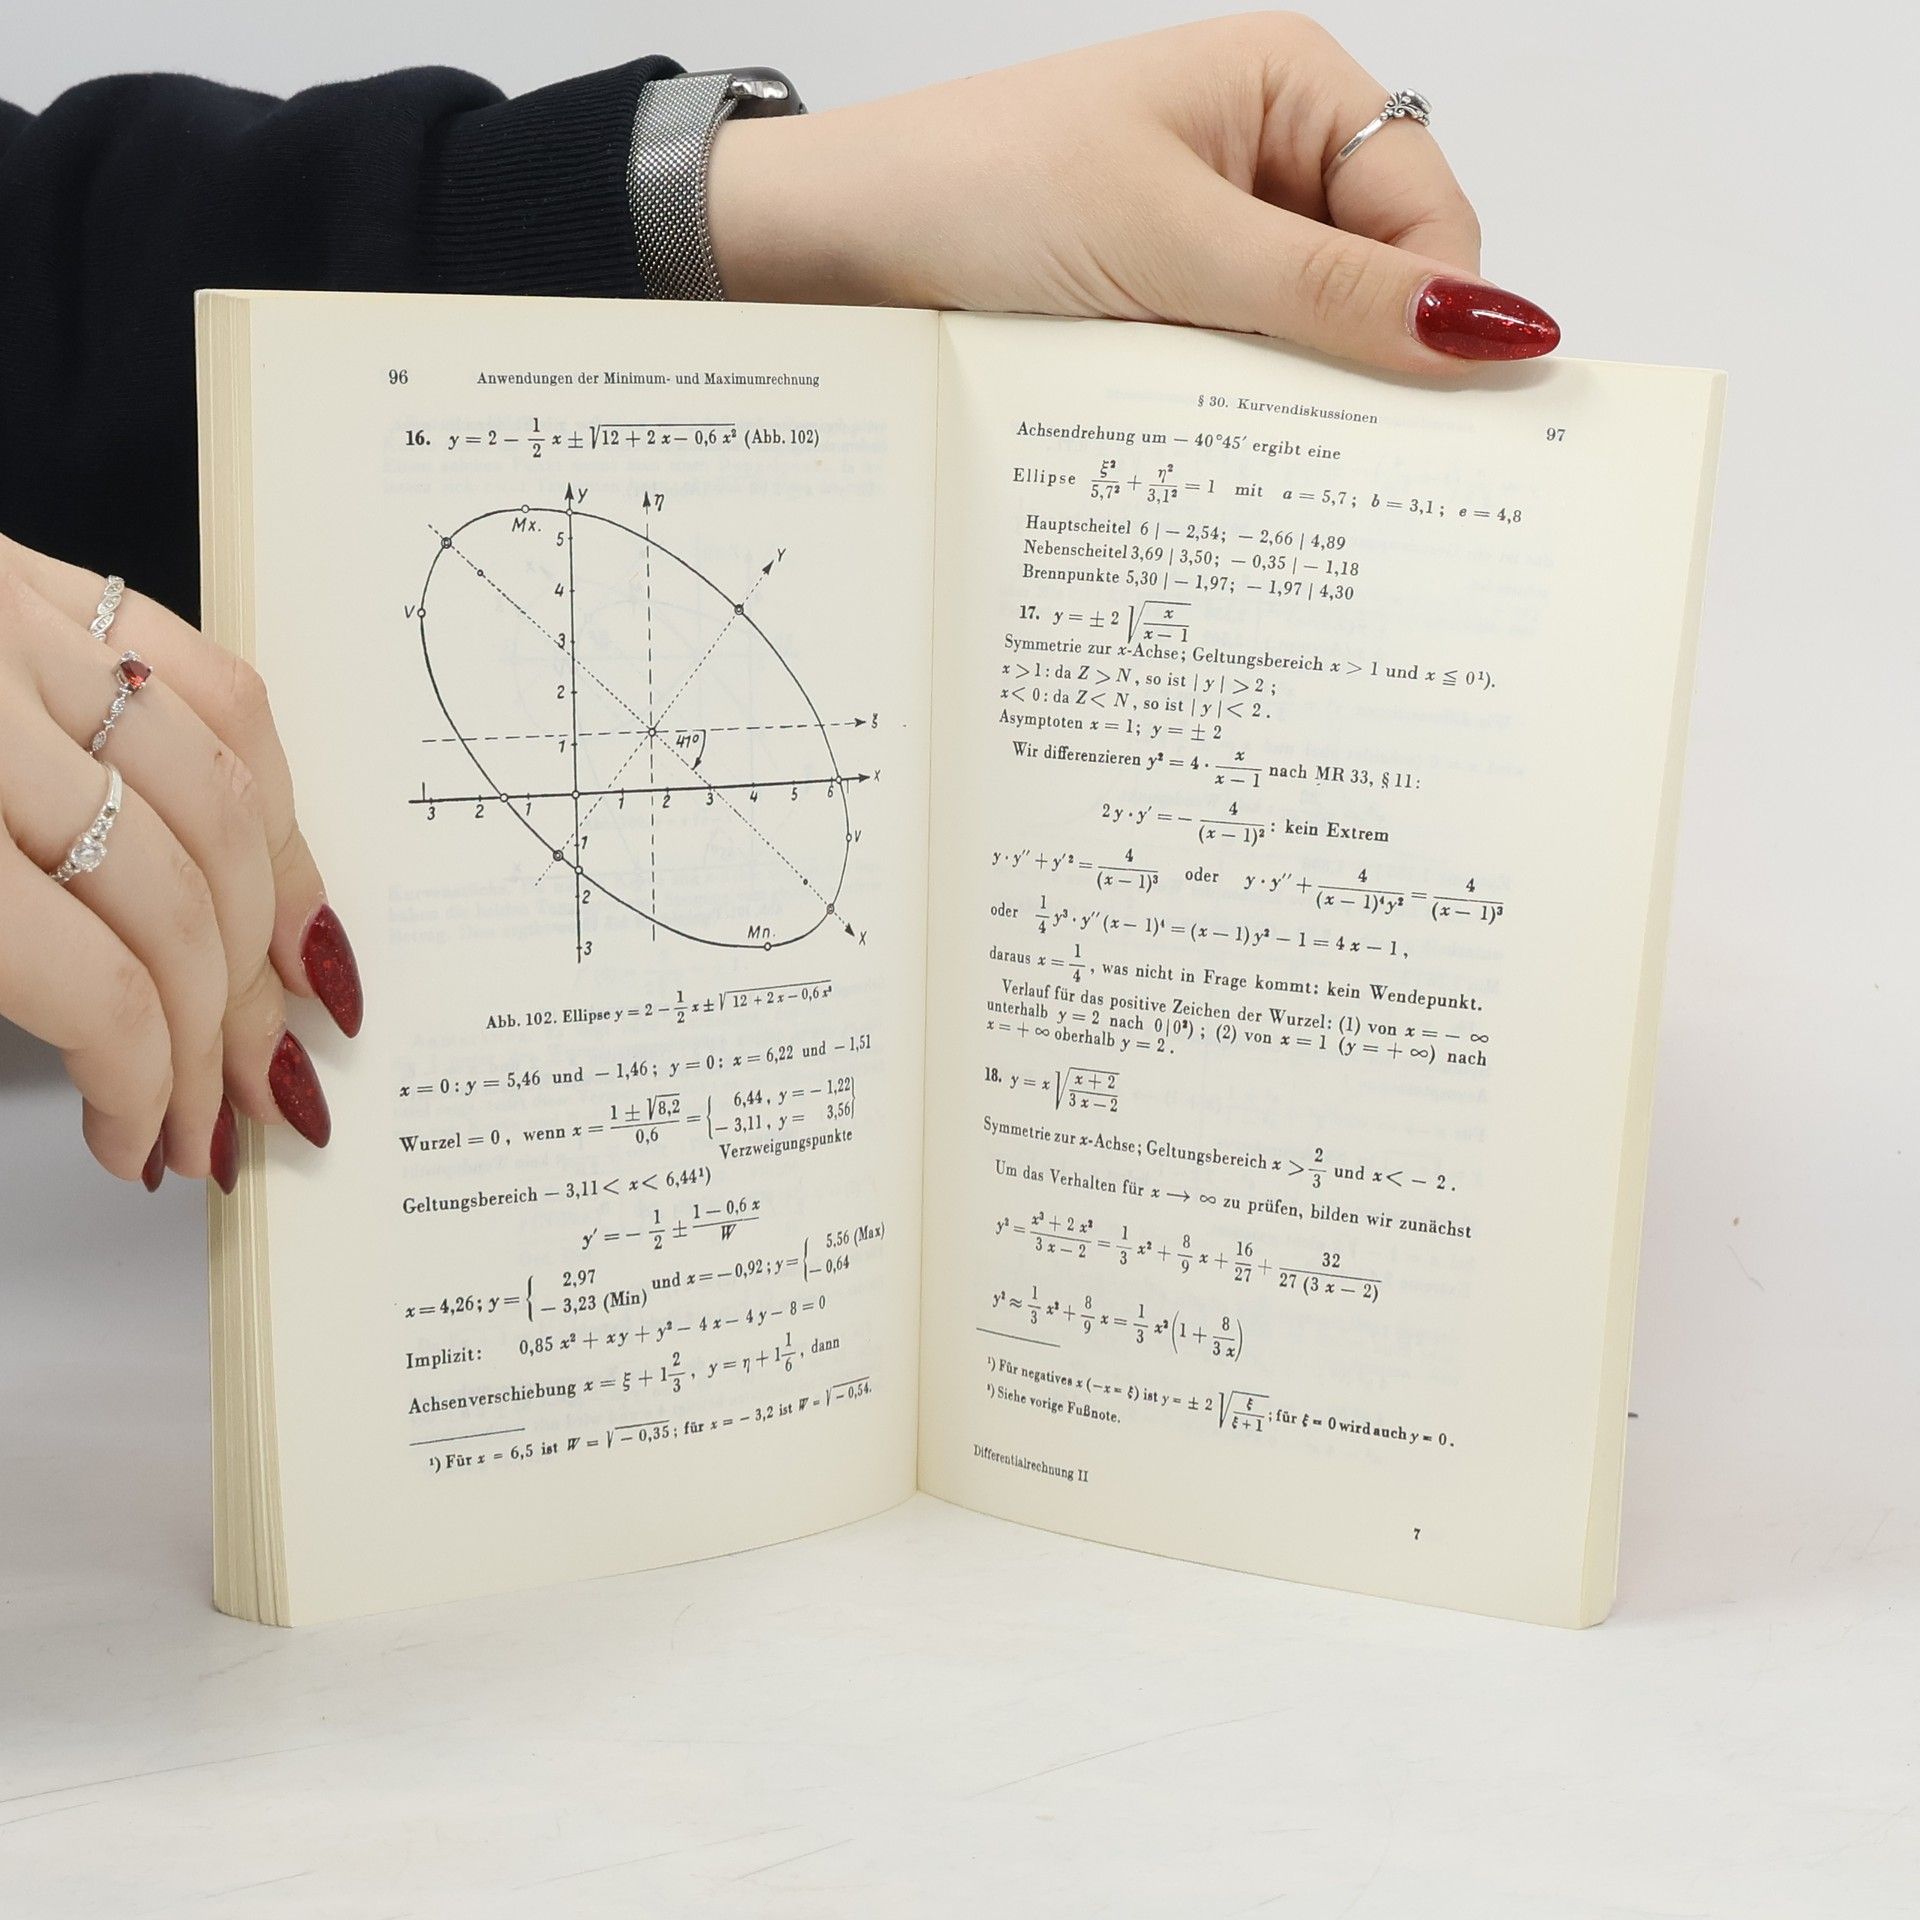 96 Anwendungen der Minimum- und Maximumrechnung
16. y = 2 − 1/2 x ± √(12 + 2 x − 0,6 x²) (Abb. 102)
y η
Mx.
5
Y
4
V
3
2
ξ
1 41°
x
3 2 1 1 2 3 4 5 6
1 V
2
Mn. X
3
Abb. 102. Ellipse y = 2 − 1/2 x ± √(12 + 2 x − 0,6 x²)
x = 0 : y = 5,46 und − 1,46 ; y = 0 : x = 6,22 und − 1,51
Wurzel = 0 , wenn x = (1 ± √8,2)/0,6 = { 6,44 , y = − 1,22 − 3,11 , y = 3,56 }
Verzweigungspunkte
Geltungsbereich − 3,11 < x < 6,44¹)
y′ = − 1/2 ± (1 − 0,6 x)/W
x = 4,26 ; y = { 2,97 − 3,23 (Min) und x = − 0,92 ; y = { 5,56 (Max) − 0,64
Implizit: 0,85 x² + xy + y² − 4 x − 4 y − 8 = 0
Achsenverschiebung x = ξ + 1 2/3 , y = η + 1 1/6 , dann
¹) Für x = 6,5 ist W = √− 0,35 ; für x = − 3,2 ist W = √− 0,54.
§ 30. Kurvendiskussionen 97
Achsendrehung um − 40°45′ ergibt eine
Ellipse ξ²/5,7² + η²/3,1² = 1 mit a = 5,7 ; b = 3,1 ; e = 4,8
Hauptscheitel 6 | − 2,54; − 2,66 | 4,89
Nebenscheitel 3,69 | 3,50; − 0,35 | − 1,18
Brennpunkte 5,30 | − 1,97; − 1,97 | 4,30
17. y = ± 2 √(x/(x − 1))
Symmetrie zur x-Achse; Geltungsbereich x > 1 und x ≦ 0¹).
x > 1 : da Z > N , so ist | y | > 2 ;
x < 0 : da Z < N , so ist | y | < 2 .
Asymptoten x = 1; y = ± 2
Wir differenzieren y² = 4 · x/(x − 1) nach MR 33, § 11 :
2 y · y′ = − 4/(x − 1)² : kein Extrem
y · y″ + y′² = 4/(x − 1)³ oder y · y″ + 4/((x − 1)⁴y²) = 4/(x − 1)³
oder 1/4 y³ · y″ (x − 1)⁴ = (x − 1) y² − 1 = 4 x − 1 ,
daraus x = 1/4 , was nicht in Frage kommt: kein Wendepunkt.
Verlauf für das positive Zeichen der Wurzel: (1) von x = − ∞
unterhalb y = 2 nach 0|0²) ; (2) von x = 1 (y = + ∞) nach
x = + ∞ oberhalb y = 2 .
18. y = x √((x + 2)/(3 x − 2))
Symmetrie zur x-Achse; Geltungsbereich x > 2/3 und x < − 2 .
Um das Verhalten für x → ∞ zu prüfen, bilden wir zunächst
y² = (x³ + 2 x²)/(3 x − 2) = 1/3 x² + 8/9 x + 16/27 + 32/(27 (3 x − 2))
y² ≈ 1/3 x² + 8/9 x = 1/3 x² (1 + 8/(3 x))
¹) Für negatives x (−x = ξ) ist y = ± 2 √(ξ/(ξ + 1)) ; für ξ = 0 wird auch y = 0 .
²) Siehe vorige Fußnote.
Differentialrechnung II
7